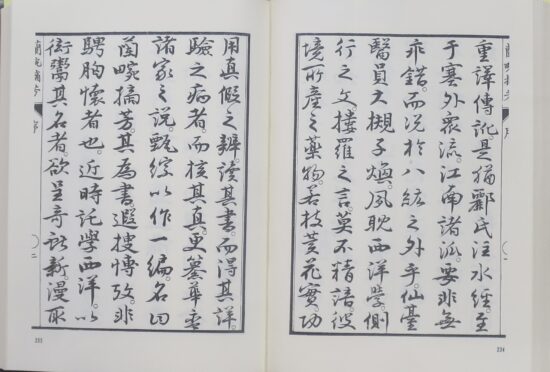 蘭畹摘芳 序
重譯傳訛。是猶酈氏注水經。至
于塞外衆流。江南諸派。要非無
乖錯。而況於八紘之外乎。仙臺
醫員大槻子煥。夙耽西洋學。側
行之文。摟羅之言。莫不精諳。彼
境所產之藥物。若枝莖花實。功
234
用真假之辨。讀其書。而得其詳。
驗之病者。而核其真。更纂華
諸家之說。甄綜以作一編。名曰
蘭畹摘芳。其為書。遐搜博攷。非
騁胸懷者也。近時託學西洋。以
衒鬻其名者。欲呈奇 新。漫取
蘭畹摘芳 序 〇二